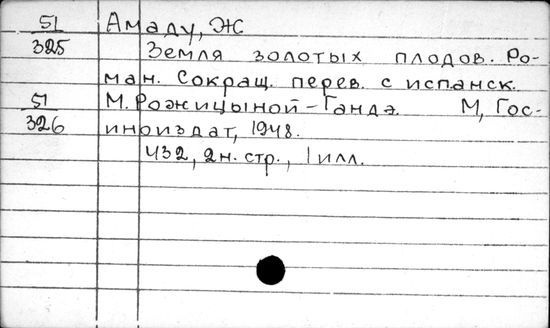 51 Амаду, Ж
325 Земля золотых плодов. Ро-
ман. Сокращ. перев. с испанск.
51 М. Рожицыной-Гандэ. М, Гос-
326 иноиздат, 1948.
432, 2н. стр., 1 илл.